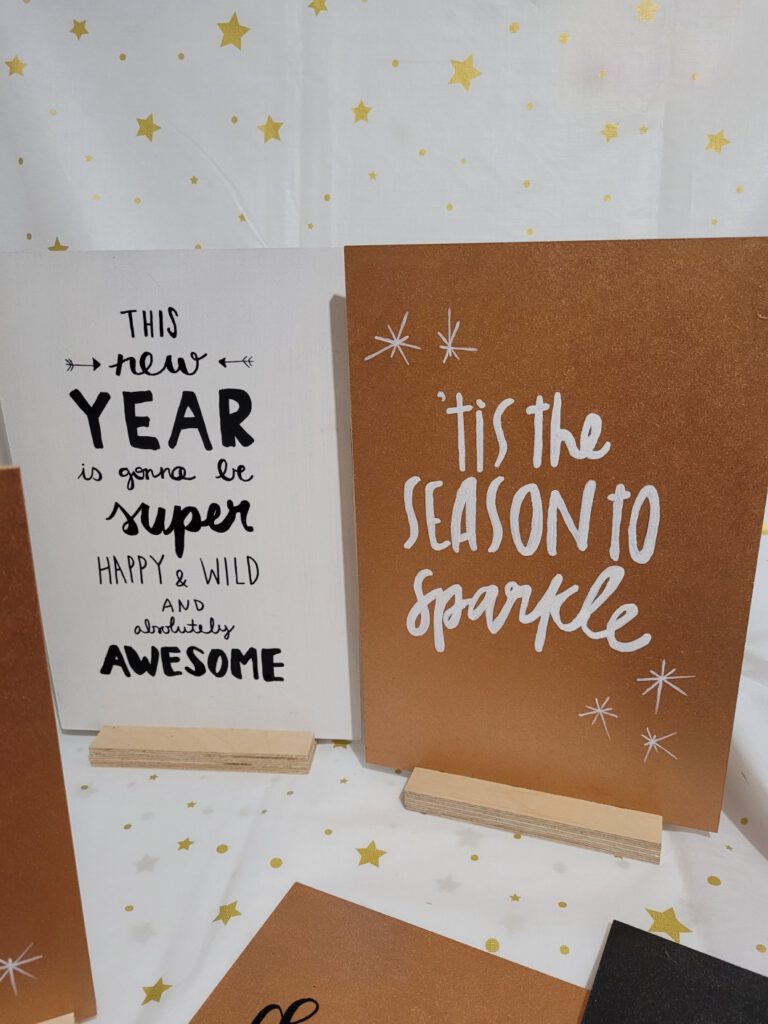 THIS
new
YEAR
is gonna be
super
HAPPY & WILD
AND
absolutely
AWESOME
'tis the
SEASON TO
sparkle